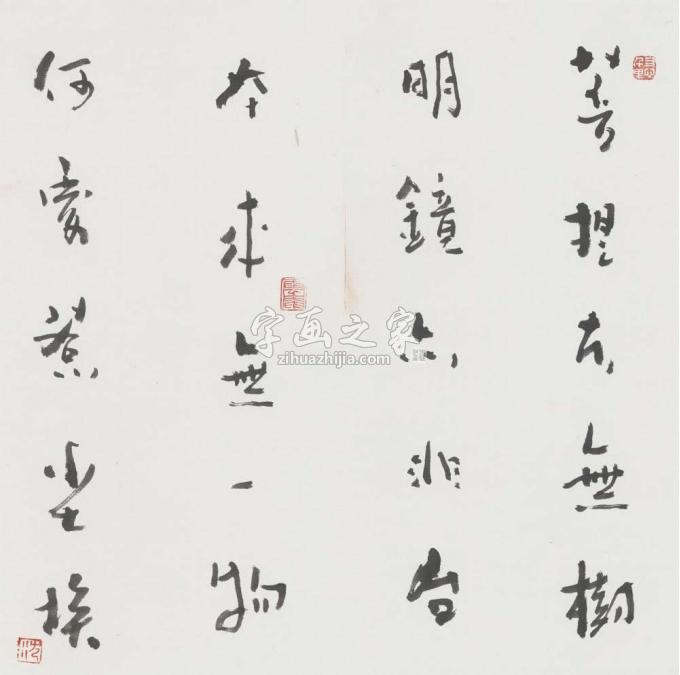 菩提本無樹
明鏡亦非台
本来無一物
何處惹尘埃
字画之家
zihuazhijia.com